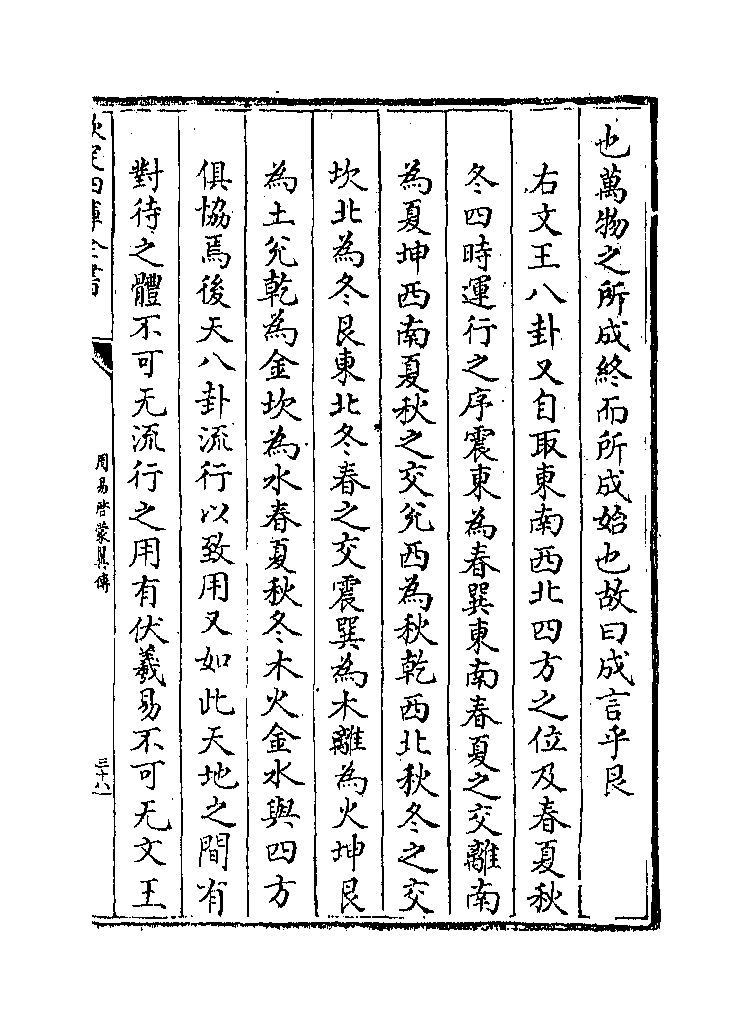 也萬物之所成終而所成始也故曰成言乎艮
右文王八卦又自取東南西北四方之位及春夏秋
冬四時運行之序震東為春巽東南春夏之交離南
為夏坤西南夏秋之交兊西為秋乾西北秋冬之交
坎北為冬艮東北冬春之交震巽為木離為火坤艮
為土兊乾為金坎為水春夏秋冬木火金水與四方
俱協焉後天八卦流行以致用又如此天地之間有
對待之體不可无流行之用有伏羲易不可无文王
欽定四庫全書
周易啓蒙翼傳
三十八